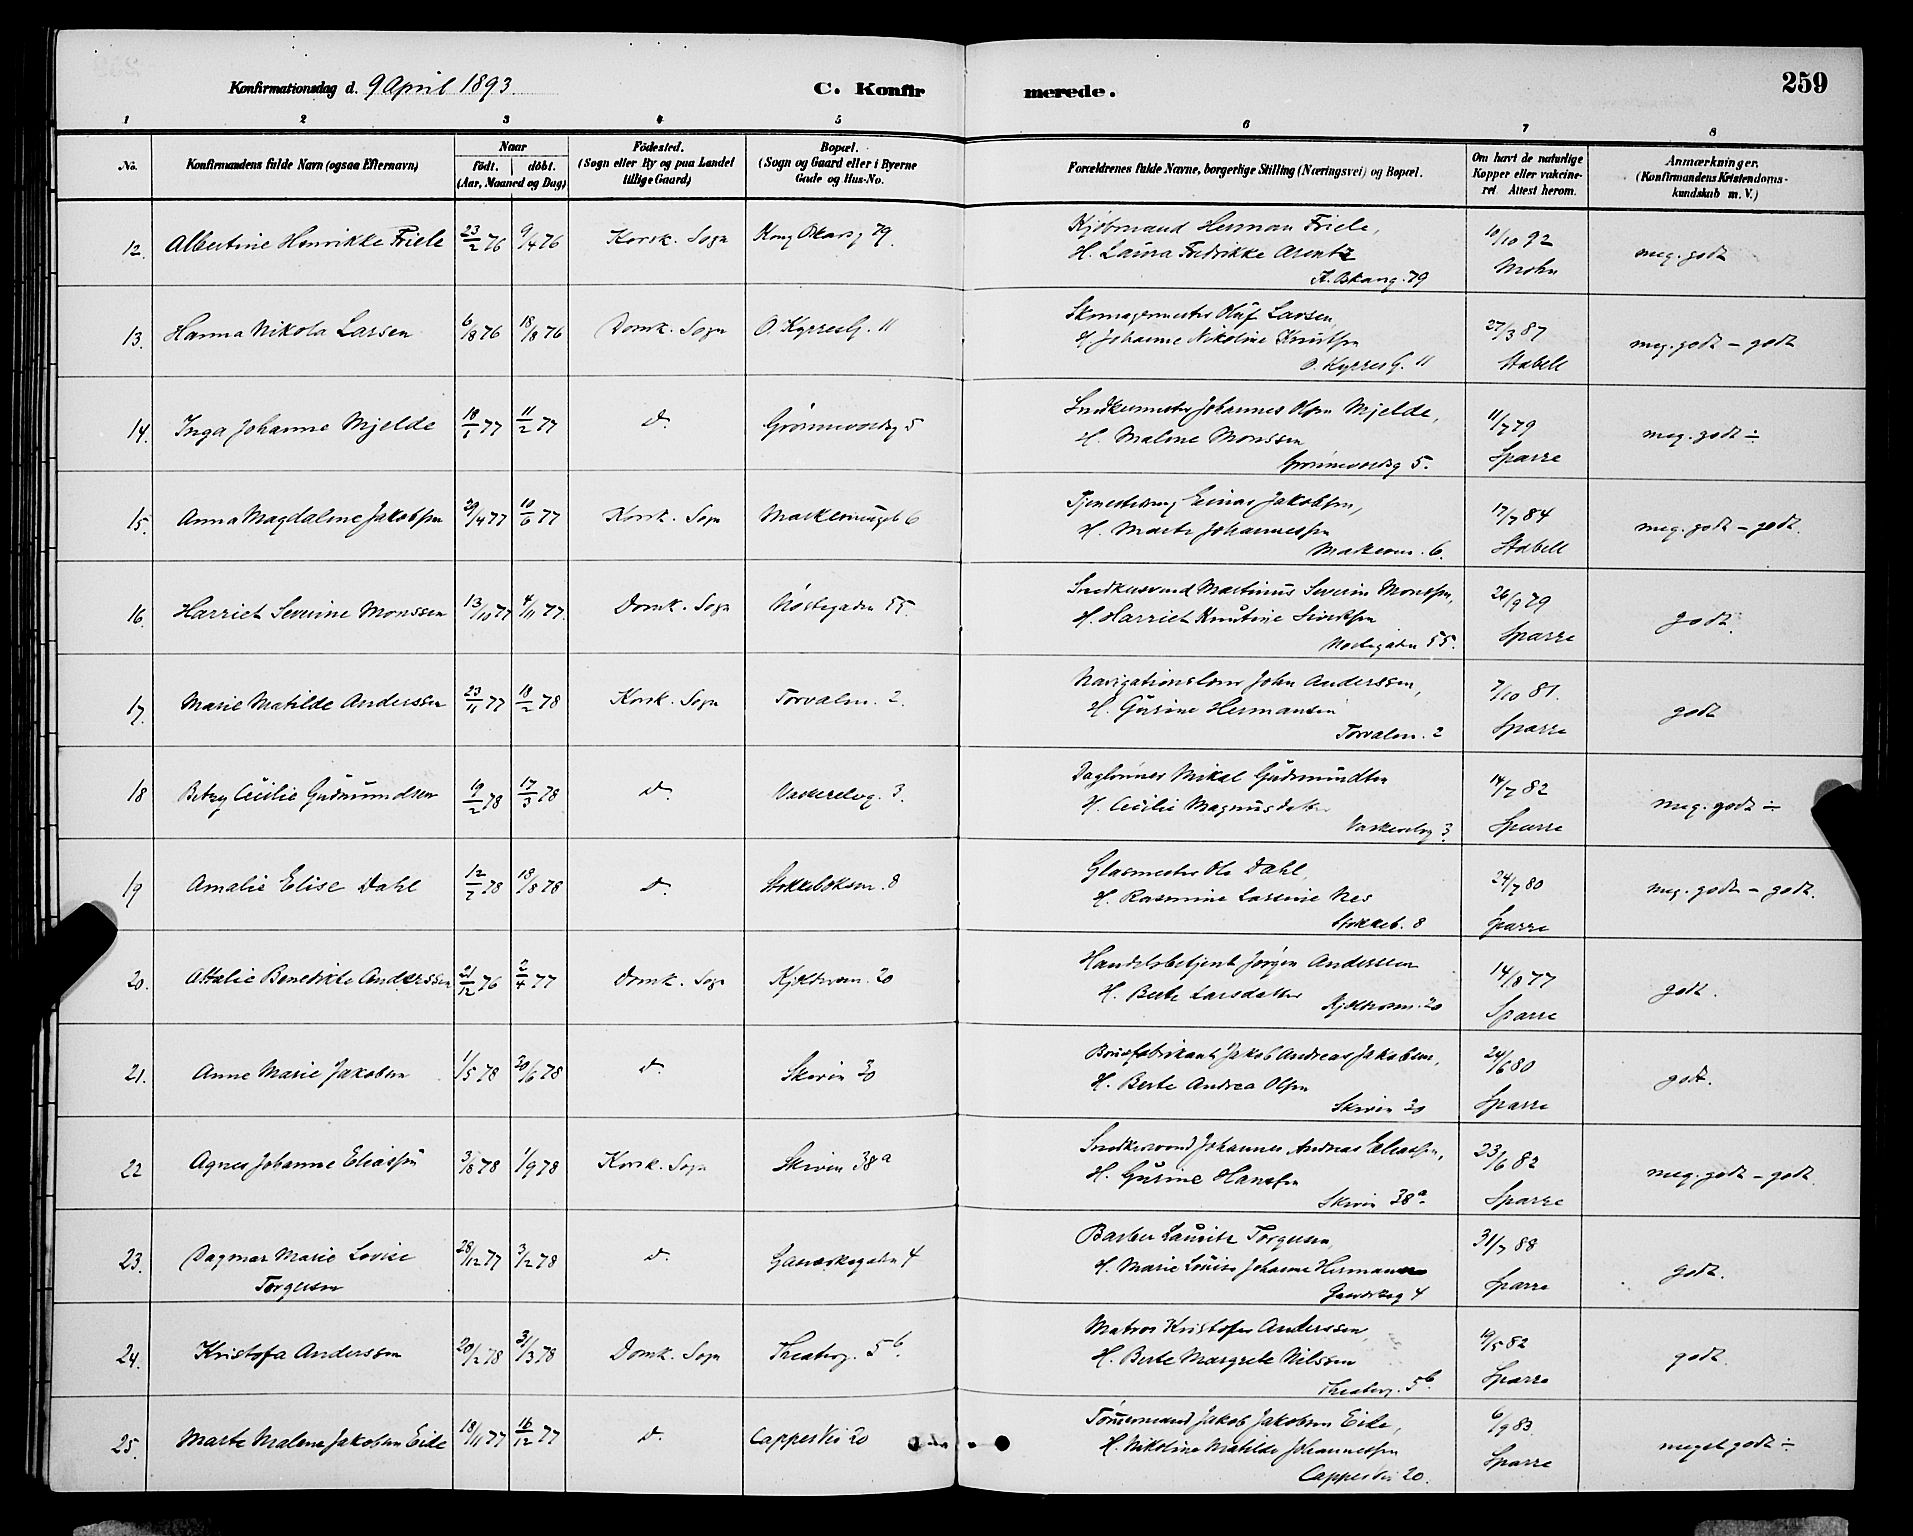 Konfirmationsdag d. 9 April 1893. C. Konfirmerede. 259
1 2 3 4 5 6 7 8
No. Konfirmandens fulde Navn (ogsaa Efternavn) Naar födt. döbt. (Aar, Maaned og Dag) Födested. (Sogn eller By og paa Landet tillige Gaard) Bopæl. (Sogn og Gaard eller i Byerne Gade og Hus-No. Forældrenes fulde Navne, borgerlige Stilling (Næringsvei) og Bopæl. Om havt de naturlige Kopper eller vakcineret Attest herom. Anmærkninger. (Konfirmandens Kristendomskundskab m. V.)
12. Albertine Henrikke Friele 23/2 76 9/4 76 Korsk. Sogn Kong Oskarsg 79. Kjöbmand Herman Friele,
H. Laura Fredrikke Arentz
K. Oskarsg. 79
10/10 92 Mohn meg. godt
13. Hanna Nikola Larsen 6/8 76 18/8 76 Domk. Sogn O. Kyrresg. 11 Skomagermester Oluf Larsen,
H. Johanne Nikoline Knutsen
O. Kyrres G. 11
27/3 87 Stabell meg. godt - godt
14. Inga Johanne Mjelde 11/2 77 D. Grønnevoldsg 5 Snedkermester Johannes Olsen Mjelde,
H. Malene Monssen
Grønnevoldsg 5.
11/7 79 Sparre meg. godt ÷
15. Anna Magdalene Jakobsen 29/4 77 10/6 77 Korsk. Sogn 6 Einar Jakobsen,
H. Marta Johannessen
6.
17/7 84 Stabell meg. godt - godt.
16. Harriet Severine Monssen 13/10 77 4/11 77. Domk. Sogn Nøstegaden 55. Snedkersvend Martinus Severin Monssen,
H. Harriet Knutine Sivertsen
Nøstegaden 55.
26/9 79 Sparre godt.
17. Marie Matilde Anderssen 23/11 77 18/2 78 Korsk. Sogn Torvalm. 2. Navigationslærer John Anderssen,
H. Gurine Hermansen
Torvalm. 2
7/10 81. Sparre godt
18 Betzy Cecilie Gudmundsen 19/2 78 17/3 78 D. Vaskerelvg. 3. Daglønner Mikal Gudmundsen
H. Cecilie Magnusdatter
Vaskerelvg 3
14/7 82 Sparre meg. godt ÷
19 Amalie Elise Dahl 12/7 78 18/8 78 D. 8 Glasmester Ole Dahl,
H. Rasmine Larsine Nes
8
24/7 80 Sparre meg. godt - godt.
20. Attalie Benedikte Anderssen 21/12 76 2/4 77 Domk. Sogn 20 Handelsbetjent Jørgen Anderssen
H. Berte Larsdatter
20
14/8 77 Sparre godt.
21. Anne Marie Jakobsen 1/5 78 30/6 78 D. Skiven 20 Jakob Andreas Jakobsen,
H. Berte Andrea Olsen
Skiven 20
24/6 80 Sparre godt.
22 Agnes Johanne Eliassen 3/8 78 1/9 78 Korsk. Sogn Skiven 38a Snedkersvend Johannes Andreas Eliassen,
H. Gurine Hansen
Skiven 38a
23/6 82 Sparre meg. godt - godt.
23. Dagmar Marie Lovise
Torgersen 28/12 77 3/12 78 D. 4 Barber Lauritz Torgersen,
H. Marie Louise Johanne Hermansen
4
31/7 88 Sparre godt.
24. Kristofa Anderssen 20/2 78 31/3 78 Domk. Sogn Theaterg. 5b. Matros Kristofer Anderssen,
H. Berte Margrete Nilssen
Theaterg. 5b.
82 Sparre godt.
25. Marte Malene Jakobsen Eide 18/11 77 16/12 77 D. Cappes Vei 20 Tømmermand Jakob Jakobsen Eide,
H. Nikoline Matilde Johannessen
Cappes Vei 20.
6/9 83. Sparre meget godt ÷